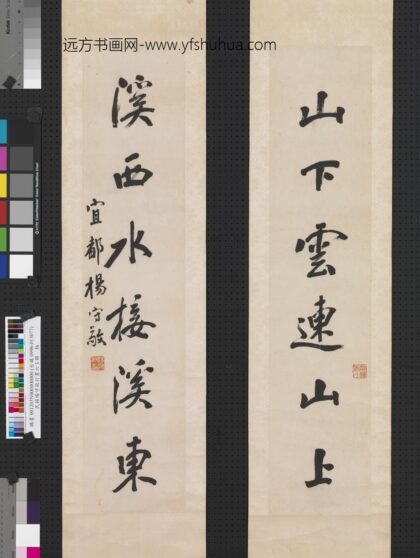 远方书画网-www.yfshuhua.com
山下雲連山上
溪西水接溪東
宜都楊守敬